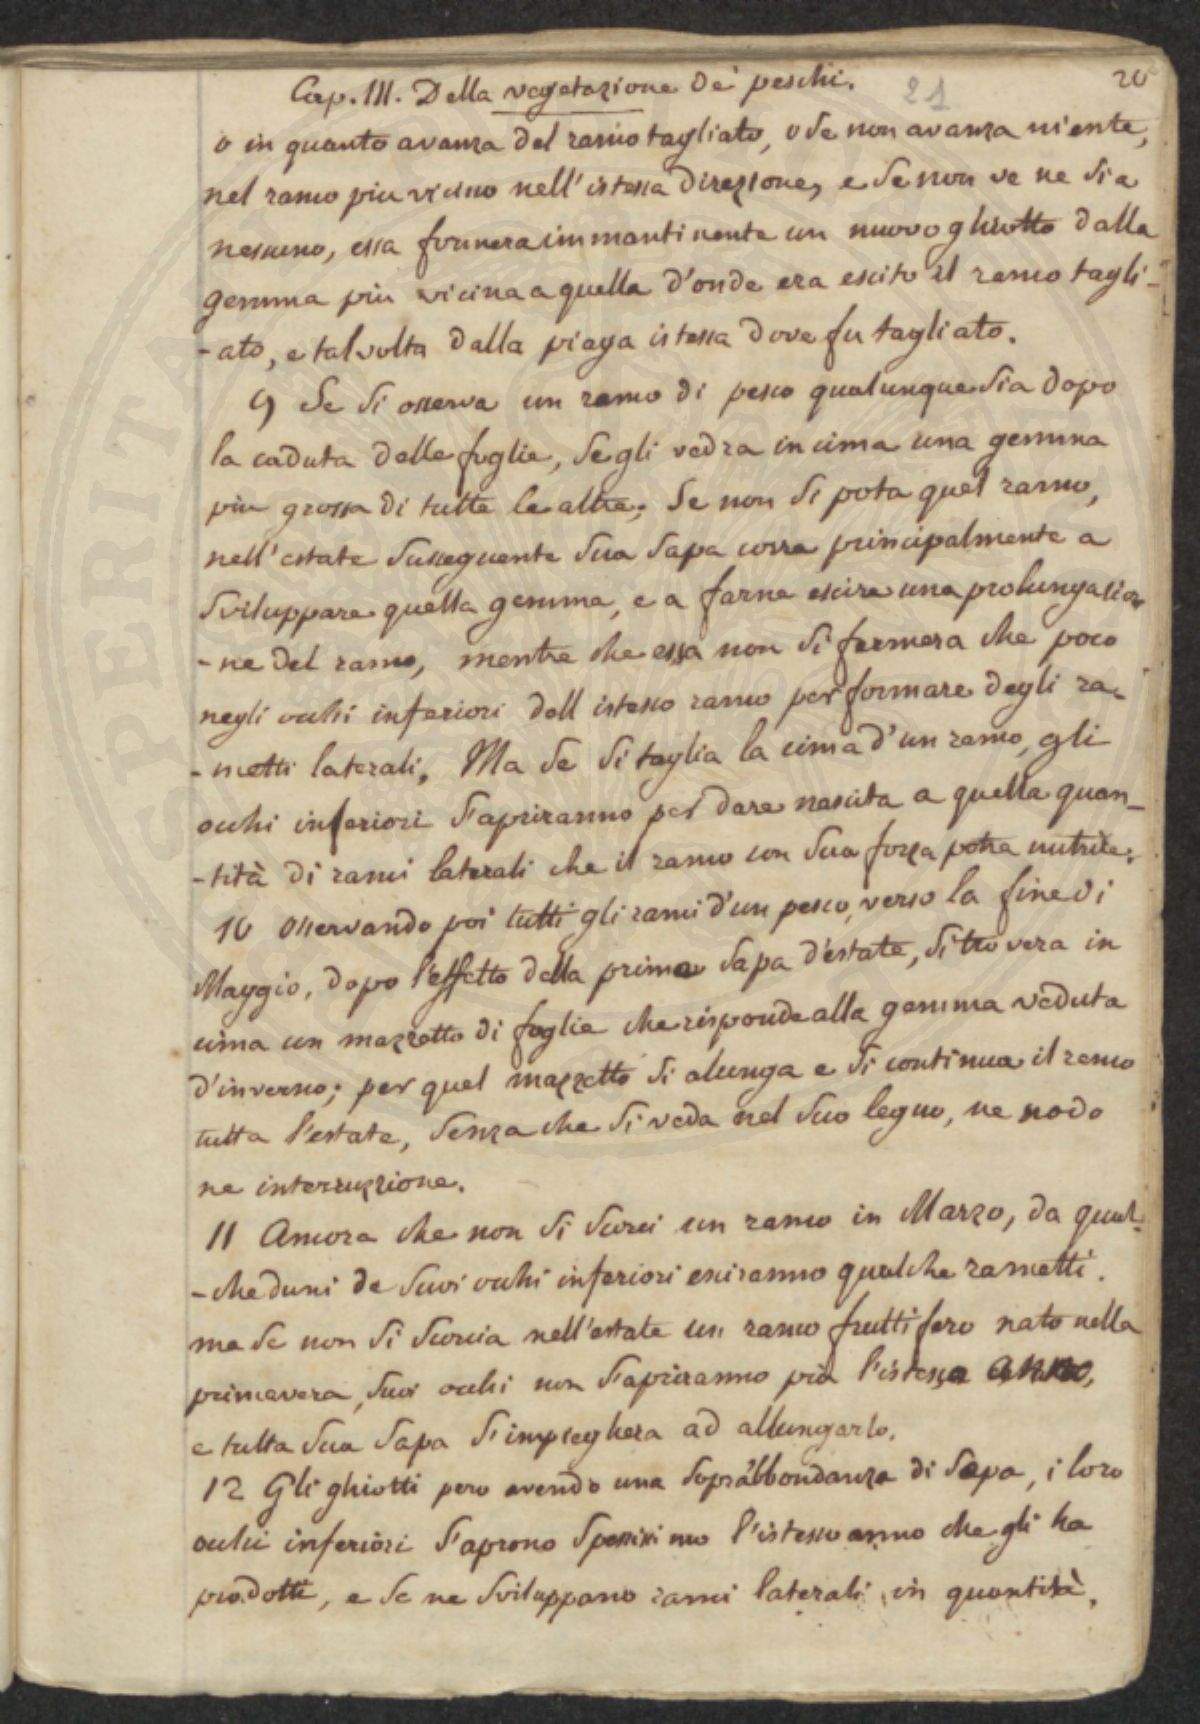 Cap. III. Della vegetazione de' peschi. 21 20
o in quanto avanza del ramo tagliato, o se non avanza niente,
nel ramo piu vicino nell'istessa direzione, e se non ve ne sia
nessuno, essa formera immantinente un nuovo ghiotto dalla
gemma piu vicina a quella d'onde era escito il ramo tagli-
-ato, e talvolta dalla piaga istessa dove fu tagliato.
9 Se si osserva un ramo di pesco qualunque sia dopo
la caduta delle foglie, segli vedra in cima una gemma
piu grossa di tutte le altre; Se non si pota quel ramo,
nell'estate susseguente sua sapa corre principalmente a
sviluppare quella gemma, e a farne escire una prolungazio-
-ne del ramo, mentre che essa non si fermera che poco
negli occhi inferiori dell istesso ramo per formare degli ra-
-metti laterali. Ma se si taglia la cima d'un ramo, gli
occhi inferiori s'apriranno per dare nascita a quella quan-
-tità di rami laterali che il ramo con sua forza potra nutrire.
10 Osservando poi tutti gli rami d'un pesco, verso la fine di
Maggio, dopo l'effetto della prima sapa d'estate, si trovera in
cima un mazzetto di foglie che risponde alla gemma veduta
d'inverno; per quel mazzetto si alunga e si continua il ramo
tutta l'estate, senza che si veda nel suo legno, ne nodo
ne interruzzione.
11 Ancora che non si scorci un ramo in Marzo, da qual-
-cheduni de suoi occhi inferiori esciranno qualche rametti.
ma se non si scorcia nell'estate un ramo fruttifero nato nella
primavera, suoi occhi non s'apriranno più l'istesso anno,
e tutta sua sapa s'impieghera ad allungarlo.
12 Gli ghiotti pero avendo una soprabbondanza di sapa, i loro
occhi inferiori s'aprono spessissimo l'istesso anno che gli ha
prodotti, e se ne sviluppano rami laterali in quantità.